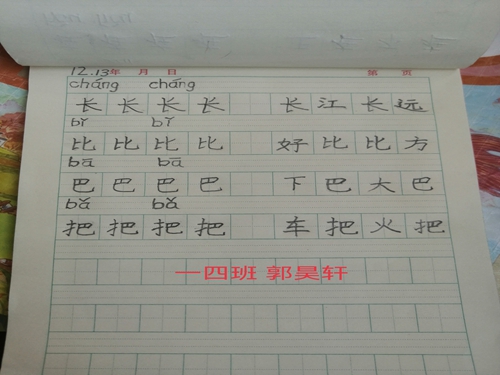 12.13年 月 日 第 页
cháng cháng
长 长 长 长 长 江 长 远
bǐ bǐ
比 比 比 比 好 比 比 方
bā bā
巴 巴 巴 巴 下 巴 大 巴
bǎ bǎ
把 把 把 把 车 把 火 把
一四班 郭昊轩